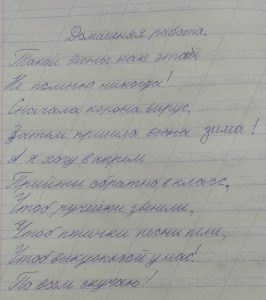 Домашняя работа.
Такой весны как этой
Не помню никогда!
Сначала корона вирус,
Затем пришла весна зима!
А я хочу в апреле
Прийти обратно в класс,
Чтоб ручейки звенели,
Чтоб птички песни пели,
Чтоб вкусной у нас!
По всем скучаю!